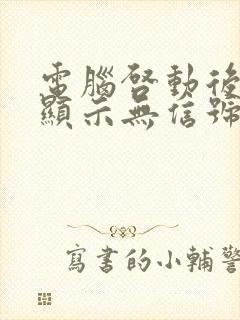 電腦啓動後
顯示無信號
寫書的小輔警